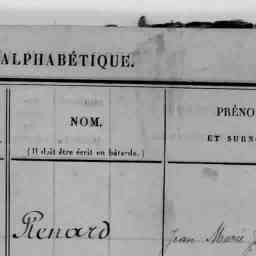 ALPHABÉTIQUE.
NOM.
(Il doit être écrit en bâtarde.)
PRÉNO
ET SURN
Renard
Jean Marie